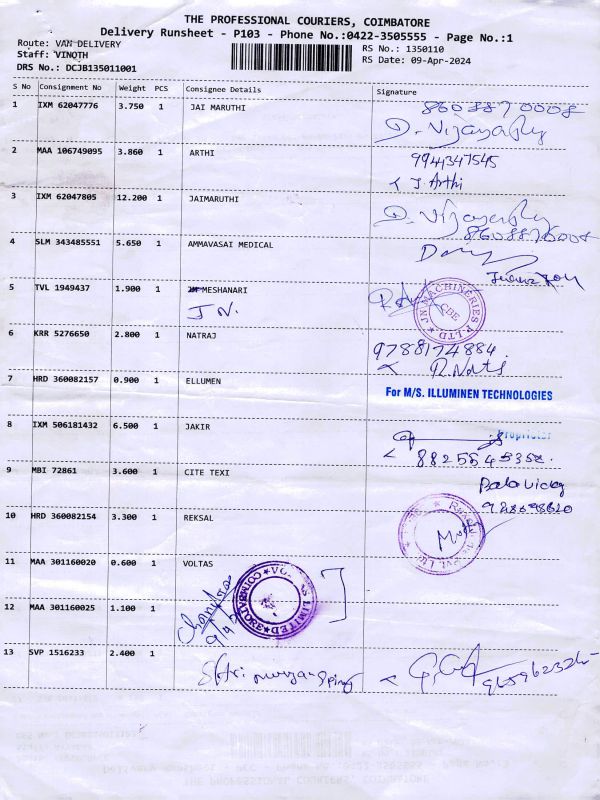 THE PROFESSIONAL COURIERS, COIMBATORE
Delivery Runsheet - P103 - Phone No.:0422-3505555 - Page No.:1
Route: VAN DELIVERY
Staff: VINOTH
DRS No.: DCJB135011001
RS No.: 1350110
RS Date: 09-Apr-2024
S No Consignment No Weight PCS Consignee Details Signature
1 IXM 62047776 3.750 1 JAI MARUTHI 8608870008
2 MAA 106749095 3.860 1 ARTHI 9941347545
J Arthi
3 IXM 62047805 12.200 1 JAIMARUTHI
8608870008
4 SLM 343485551 5.650 1 AMMAVASAI MEDICAL
5 TVL 1949437 1.900 1 MESHANARI
J N.
JN MACHINERIES P.LTD CBE
6 KRR 5276650 2.800 1 NATRAJ 9788174884
7 HRD 360082157 0.900 1 ELLUMEN For M/S. ILLUMINEN TECHNOLOGIES
Proprietor
8 IXM 506181432 6.500 1 JAKIR
9 MBI 72861 3.600 1 CITE TEXI
10 HRD 360082154 3.300 1 REKSAL
11 MAA 301160020 0.600 1 VOLTAS
VOLTAS LIMITED COIMBATORE
12 MAA 301160025 1.100 1
13 SVP 1516233 2.400 1